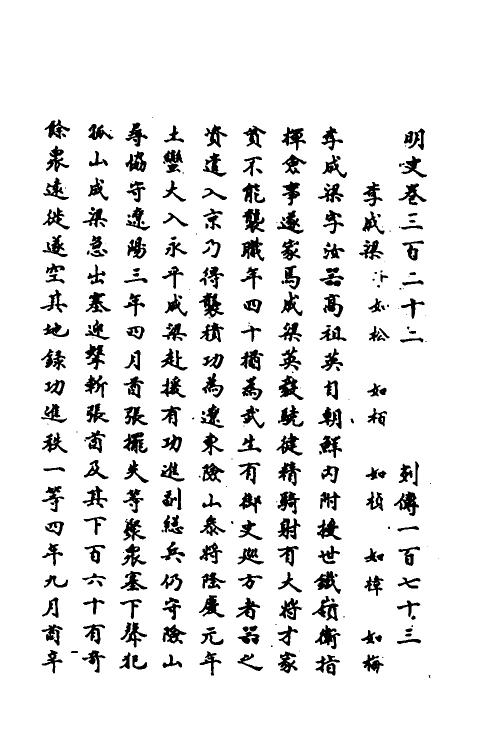 明史卷三百二十二　列傳一百七十三
李成梁 子如松　如栢　如楨　如樟　如梅
李成梁字汝器高祖英自朝鮮內附授世鐵嶺衛指
揮僉事遂家焉成梁英發驍徤精騎射有大將才家
貧不能襲職年四十猶為武生有御史廵方者器之
資遣入京乃得襲積功為遼東險山參將隆慶元年
土蠻大入永平成梁赴援有功進副緫兵仍守險山
尋協守遼陽三年四月酋張擺失等聚衆塞下聲犯
孤山成梁急出塞迎擊斬張酋及其下百六十有奇
餘衆遠徙遂空其地錄功進秩一等四年九月酋辛